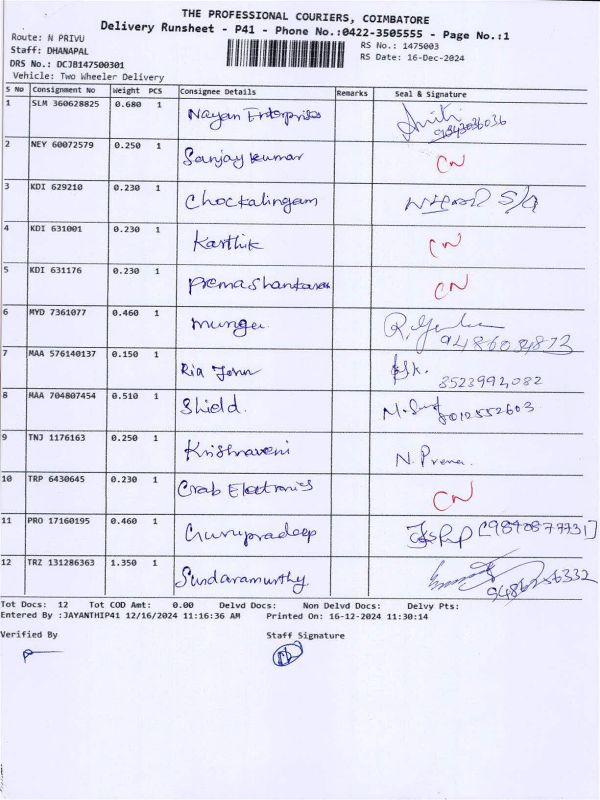 THE PROFESSIONAL COURIERS, COIMBATORE
Delivery Runsheet - P41 - Phone No.:0422-3505555 - Page No.:1
Route: N PRIVU
RS No.: 1475003
Staff: DHANAPAL
RS Date: 16-Dec-2024
DRS No.: DCJB147500301
Vehicle: Two Wheeler Delivery
S No Consignment No Weight PCS Consignee Details Remarks Seal & Signature
1 SLM 360628825 0.680 1 Nayan Enterprises 9843036036
2 NEY 60072579 0.250 1 Sanjay kumar CN
3 KDI 629210 0.230 1 Chockalingam S/a
4 KDI 631001 0.230 1 Karthik CN
5 KDI 631176 0.230 1 Premashankaran CN
6 MYD 7361077 0.460 1
7 MAA 576140137 0.150 1 Ria John
8 MAA 704807454 0.510 1 Shield.
9 TNJ 1176163 0.250 1 Krishnaveni N. Prema.
10 TRP 6430645 0.230 1 Crab Electronics CN
11 PRO 17160195 0.460 1 Gurupradeep
12 TRZ 131286363 1.350 1 Sundaramurthy 9486256332
Tot Docs: 12 Tot COD Amt: 0.00 Delvd Docs: Non Delvd Docs: Delvy Pts:
Entered By :JAYANTHIP41 12/16/2024 11:16:36 AM Printed On: 16-12-2024 11:30:14
Verified By Staff Signature